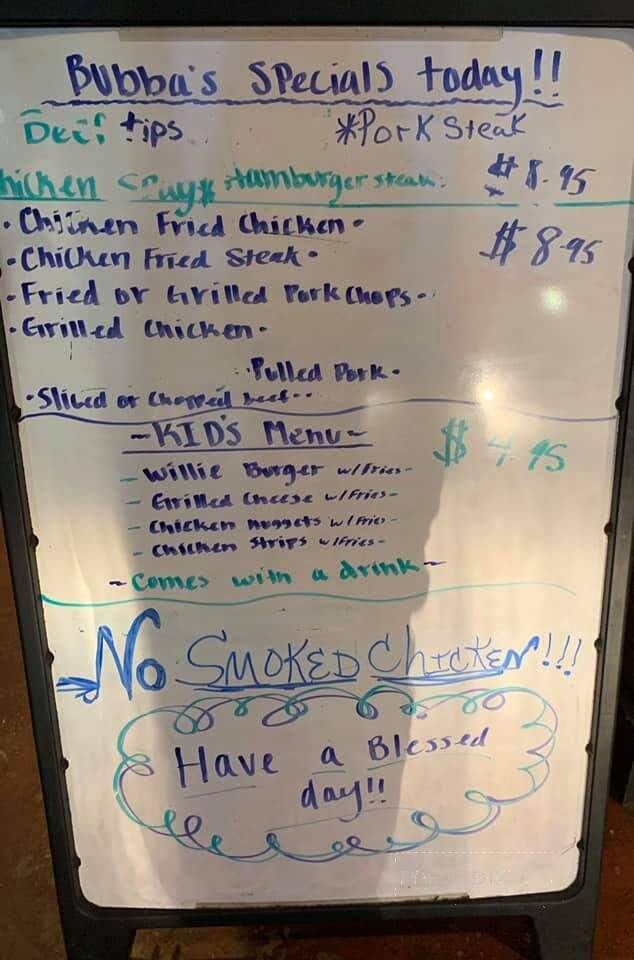 Bubba's Specials today!!
tips *Pork Steak
Hamburger steak. $8.95
Chicken Fried Chicken $8.95
Chicken Fried Steak
Fried or Grilled Pork Chops
Grilled Chicken
Pulled Pork
Sliced or Chopped beef
~KID'S Menu~ $4.95
- Willie Burger w/Fries-
- Grilled Cheese w/Fries-
- Chicken nuggets w/Fries-
- Chicken Strips w/Fries-
~Comes with a drink~
No SMOKED ChICKEN!!!
Have a Blessed
day!!